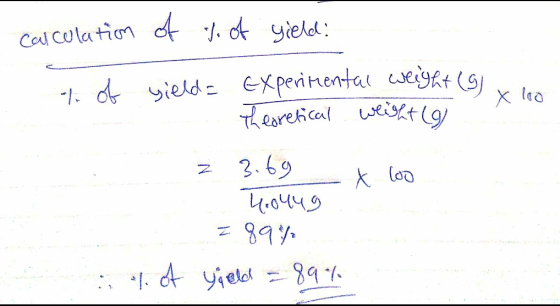 Calculation of % of yield:
% of yield = Experimental weight (g)
Theoretical weight (g) × 100
= 3.6g
4.044g × 100
= 89%
∴ % of yield = 89%